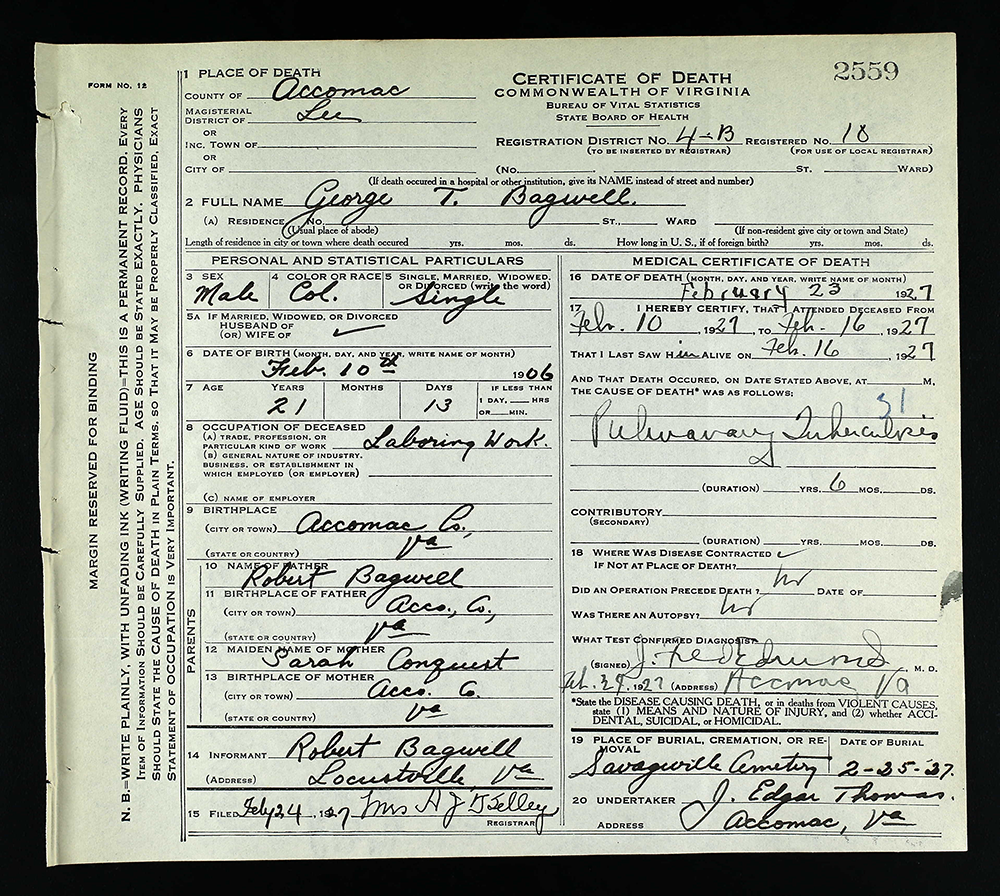 2559
FORM NO. 12
MARGIN RESERVED FOR BINDING
N. B.=WRITE PLAINLY, WITH UNFADING INK (WRITING FLUID)=THIS IS A PERMANENT RECORD. EVERY
ITEM OF INFORMATION SHOULD BE CAREFULLY SUPPLIED. AGE SHOULD BE STATED EXACTLY. PHYSICIANS
SHOULD STATE THE CAUSE OF DEATH IN PLAIN TERMS, SO THAT IT MAY BE PROPERLY CLASSIFIED. EXACT
STATEMENT OF OCCUPATION IS VERY IMPORTANT.
1 PLACE OF DEATH
COUNTY OF Accomac
MAGISTERIAL
DISTRICT OF Lee
OR
INC. TOWN OF
OR
CITY OF (NO. ST. WARD)
CERTIFICATE OF DEATH
COMMONWEALTH OF VIRGINIA
BUREAU OF VITAL STATISTICS
STATE BOARD OF HEALTH
REGISTRATION DISTRICT NO. 4-B REGISTERED NO. 18
(TO BE INSERTED BY REGISTRAR) (FOR USE OF LOCAL REGISTRAR)
(If death occured in a hospital or other institution, give its NAME instead of street and number)
2 FULL NAME George T. Bagwell.
(A) RESIDENCE No. ST., WARD
(Usual place of abode) (If non-resident give city or town and State)
Length of residence in city or town where death occured yrs. mos. ds. How long in U. S., if of foreign birth? yrs. mos. ds.
PERSONAL AND STATISTICAL PARTICULARS
3 SEX 4 COLOR OR RACE 5 SINGLE, MARRIED, WIDOWED,
OR DIVORCED (write the word)
Male Col. Single
5A IF MARRIED, WIDOWED, OR DIVORCED
HUSBAND OF
(OR) WIFE OF
6 DATE OF BIRTH (MONTH, DAY, AND YEAR, WRITE NAME OF MONTH)
Feb. 10th 1906
7 AGE YEARS MONTHS DAYS IF LESS THAN
1 DAY, HRS
OR MIN.
21 13
8 OCCUPATION OF DECEASED
(A) TRADE, PROFESSION, OR
PARTICULAR KIND OF WORK Laboring Work.
(B) GENERAL NATURE OF INDUSTRY,
BUSINESS, OR ESTABLISHMENT IN
WHICH EMPLOYED (OR EMPLOYER)
(C) NAME OF EMPLOYER
9 BIRTHPLACE
(CITY OR TOWN) Accomac Co.,
(STATE OR COUNTRY) Va
PARENTS
10 NAME OF FATHER
Robert Bagwell
11 BIRTHPLACE OF FATHER
(CITY OR TOWN) Acco., Co,
(STATE OR COUNTRY) Va
12 MAIDEN NAME OF MOTHER
Sarah Conquest
13 BIRTHPLACE OF MOTHER
(CITY OR TOWN) Acco. Co.
(STATE OR COUNTRY) Va
14 INFORMANT Robert Bagwell
(ADDRESS) Locustville, Va
15 FILED Feby 24, 1927 Mrs A J
REGISTRAR
MEDICAL CERTIFICATE OF DEATH
16 DATE OF DEATH (MONTH, DAY, AND YEAR, WRITE NAME OF MONTH)
February 23 1927
17 I HEREBY CERTIFY, THAT I ATTENDED DECEASED FROM
Feb. 10, 1927, TO Feb. 16, 1927
THAT I LAST SAW Him ALIVE ON Feb. 16, 1927
AND THAT DEATH OCCURED, ON DATE STATED ABOVE, AT M,
THE CAUSE OF DEATH* WAS AS FOLLOWS:
31
Pulmonary Tuberculosis
(DURATION) YRS. 6 MOS. DS.
CONTRIBUTORY
(SECONDARY)
(DURATION) YRS. MOS. DS.
18 WHERE WAS DISEASE CONTRACTED
IF NOT AT PLACE OF DEATH?
DID AN OPERATION PRECEDE DEATH? no DATE OF
WAS THERE AN AUTOPSY? no
WHAT TEST CONFIRMED DIAGNOSIS?
(SIGNED) M. D.
Feb. 24, 1927 (ADDRESS) Accomac Va
*State the DISEASE CAUSING DEATH, or in deaths from VIOLENT CAUSES,
state (1) MEANS AND NATURE OF INJURY, and (2) whether ACCI-
DENTAL, SUICIDAL, or HOMICIDAL.
19 PLACE OF BURIAL, CREMATION, OR RE-
MOVAL DATE OF BURIAL
Savageville Cemetery 2-25-27.
20 UNDERTAKER J. Edgar Thomas.
ADDRESS Accomac, Va